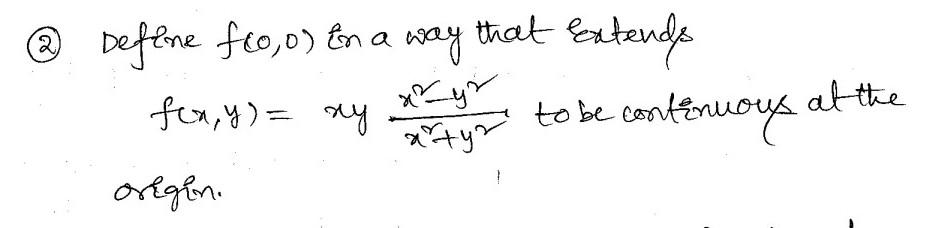 ② Define f(0,0) in a way that Extends
f(x,y) = xy \frac{x^2-y^2}{x^2+y^2} to be continuous at the
origin.